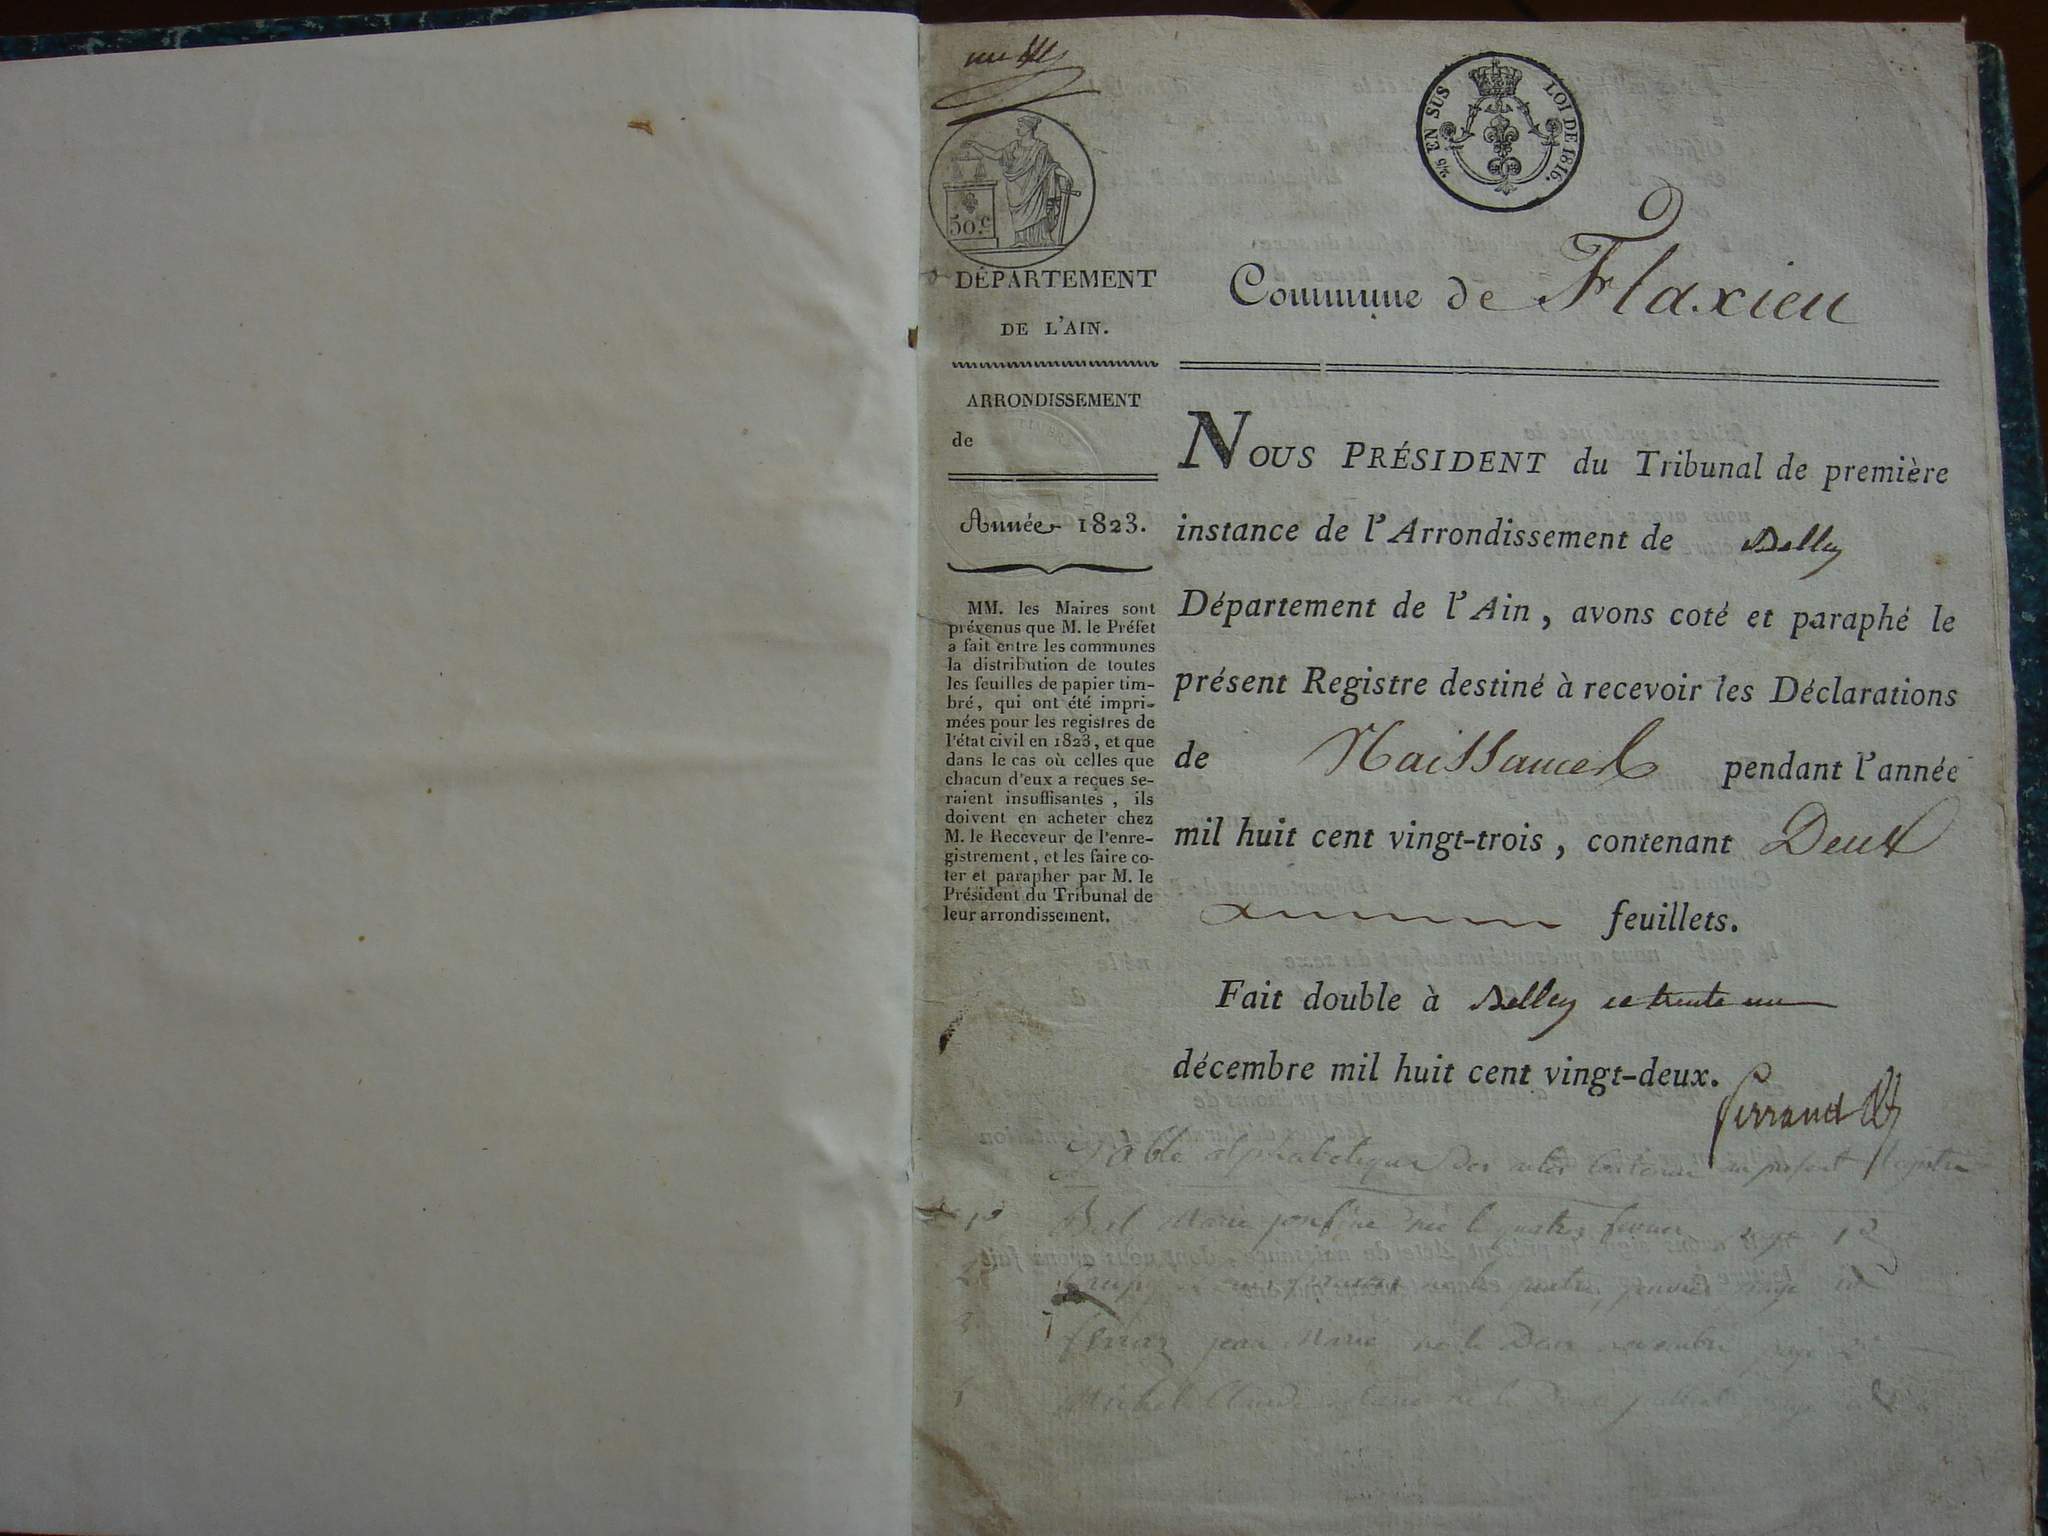 2/5 EN SUS
LOI DE 1816.
50.c
DÉPARTEMENT
DE L'AIN.
ARRONDISSEMENT
de
Année 1823.
MM. les Maires sont
prévenus que M. le Préfet
a fait entre les communes
la distribution de toutes
les feuilles de papier tim-
bré, qui ont été impri-
mées pour les registres de
l'état civil en 1823, et que
dans le cas où celles que
chacun d'eux a reçues se-
raient insuffisantes, ils
doivent en acheter chez
M. le Receveur de l'enre-
gistrement, et les faire co-
ter et parapher par M. le
Président du Tribunal de
leur arrondissement.
Commune de Flaxieu
NOUS PRÉSIDENT du Tribunal de première
instance de l'Arrondissement de Belley
Département de l'Ain, avons coté et paraphé le
présent Registre destiné à recevoir les Déclarations
de Naissances pendant l'année
mil huit cent vingt-trois, contenant Deux
feuillets.
Fait double à Belley ce trente un
décembre mil huit cent vingt-deux.
Table alphabetique des actes au present Registre
1º Marie née le quatre page 1
2 le janvier page
3 jean Marie né le Deux novembre page 2
Michel Claude né le page